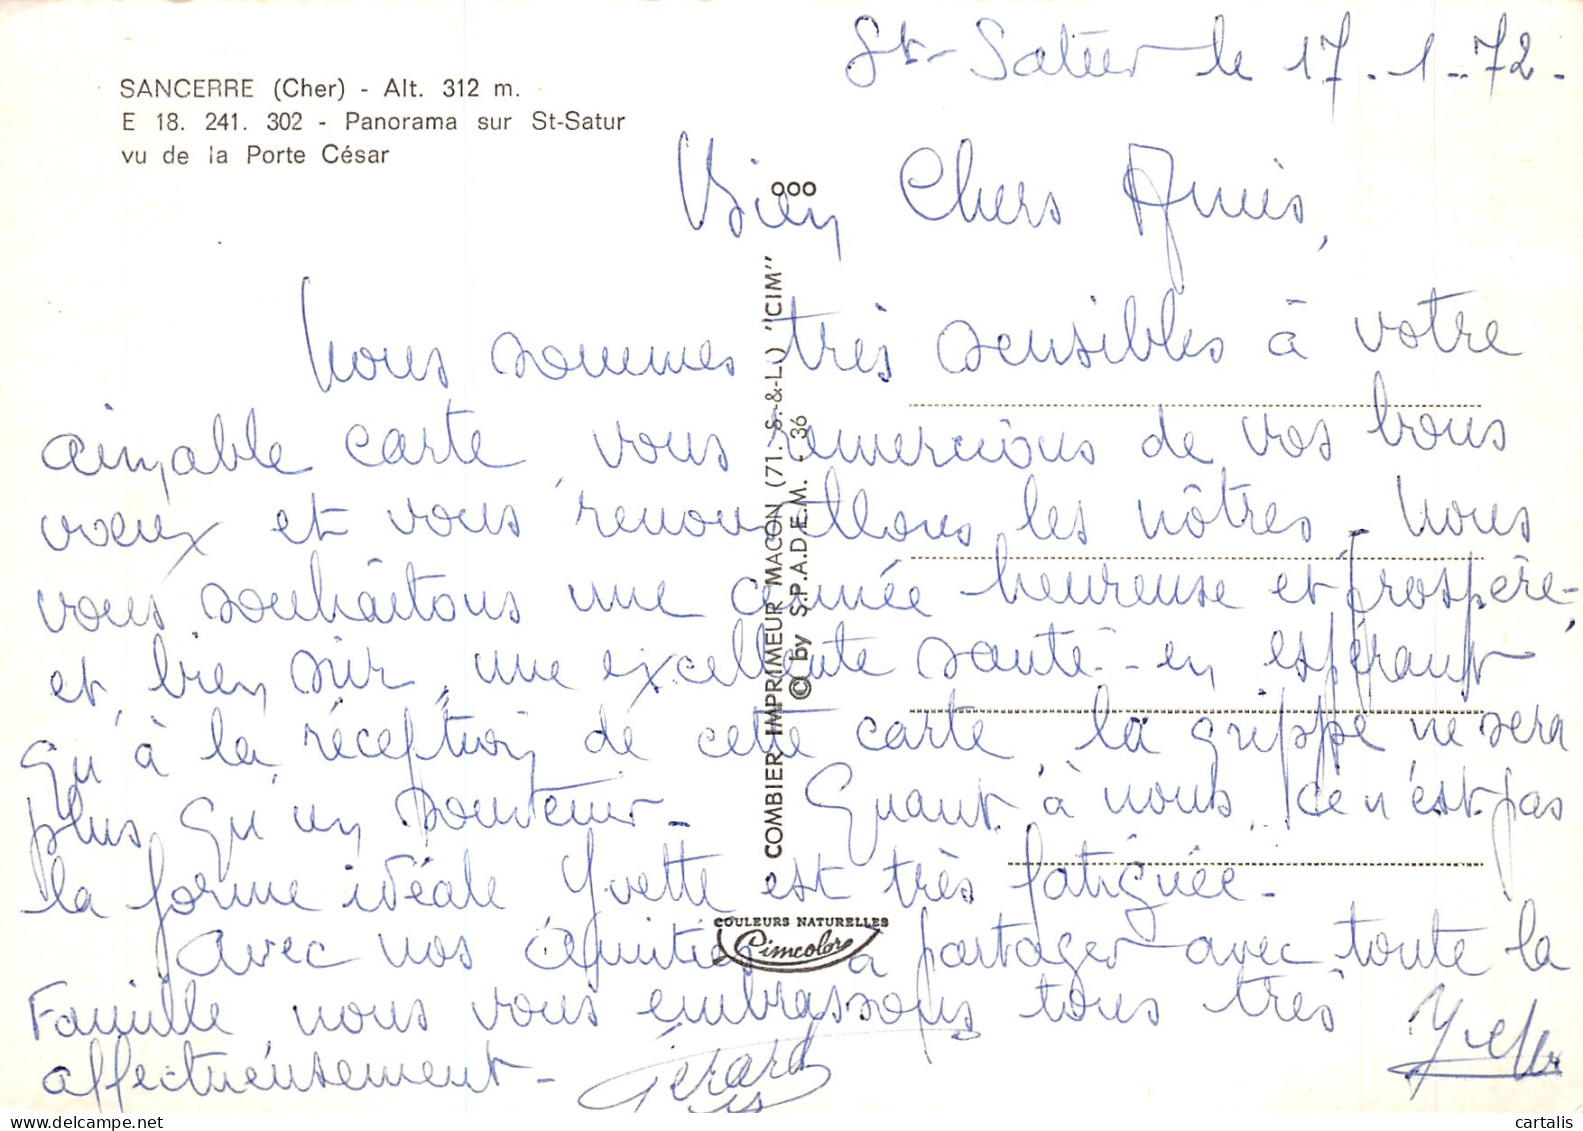 St-Satur le 17.1.72.
SANCERRE (Cher) - Alt. 312 m.
E 18. 241. 302 - Panorama sur St-Satur
vu de la Porte César
Bien Chers Amis,
Nous sommes très sensibles à votre
aimable carte, vous remercions de vos bons
vœux et vous renouvellons les nôtres. Nous
vous souhaitons une année heureuse et prospère -
et, bien sûr, une excellente santé - en espérant
qu'à la réception de cette carte, la grippe ne sera
plus qu'un souvenir - Quant à nous, ce n'est pas
la forme idéale Yvette est très fatiguée -
Avec nos amitiés à partager avec toute la
Famille, nous vous embrassons tous très
affectueusement -
Gérard
Yvette
ooo
COMBIER IMPRIMEUR MACON (71. S.-&-L.) "CIM"
© by S.P.A.D.E.M. - 36
COULEURS NATURELLES
Cimcolor
cartalis